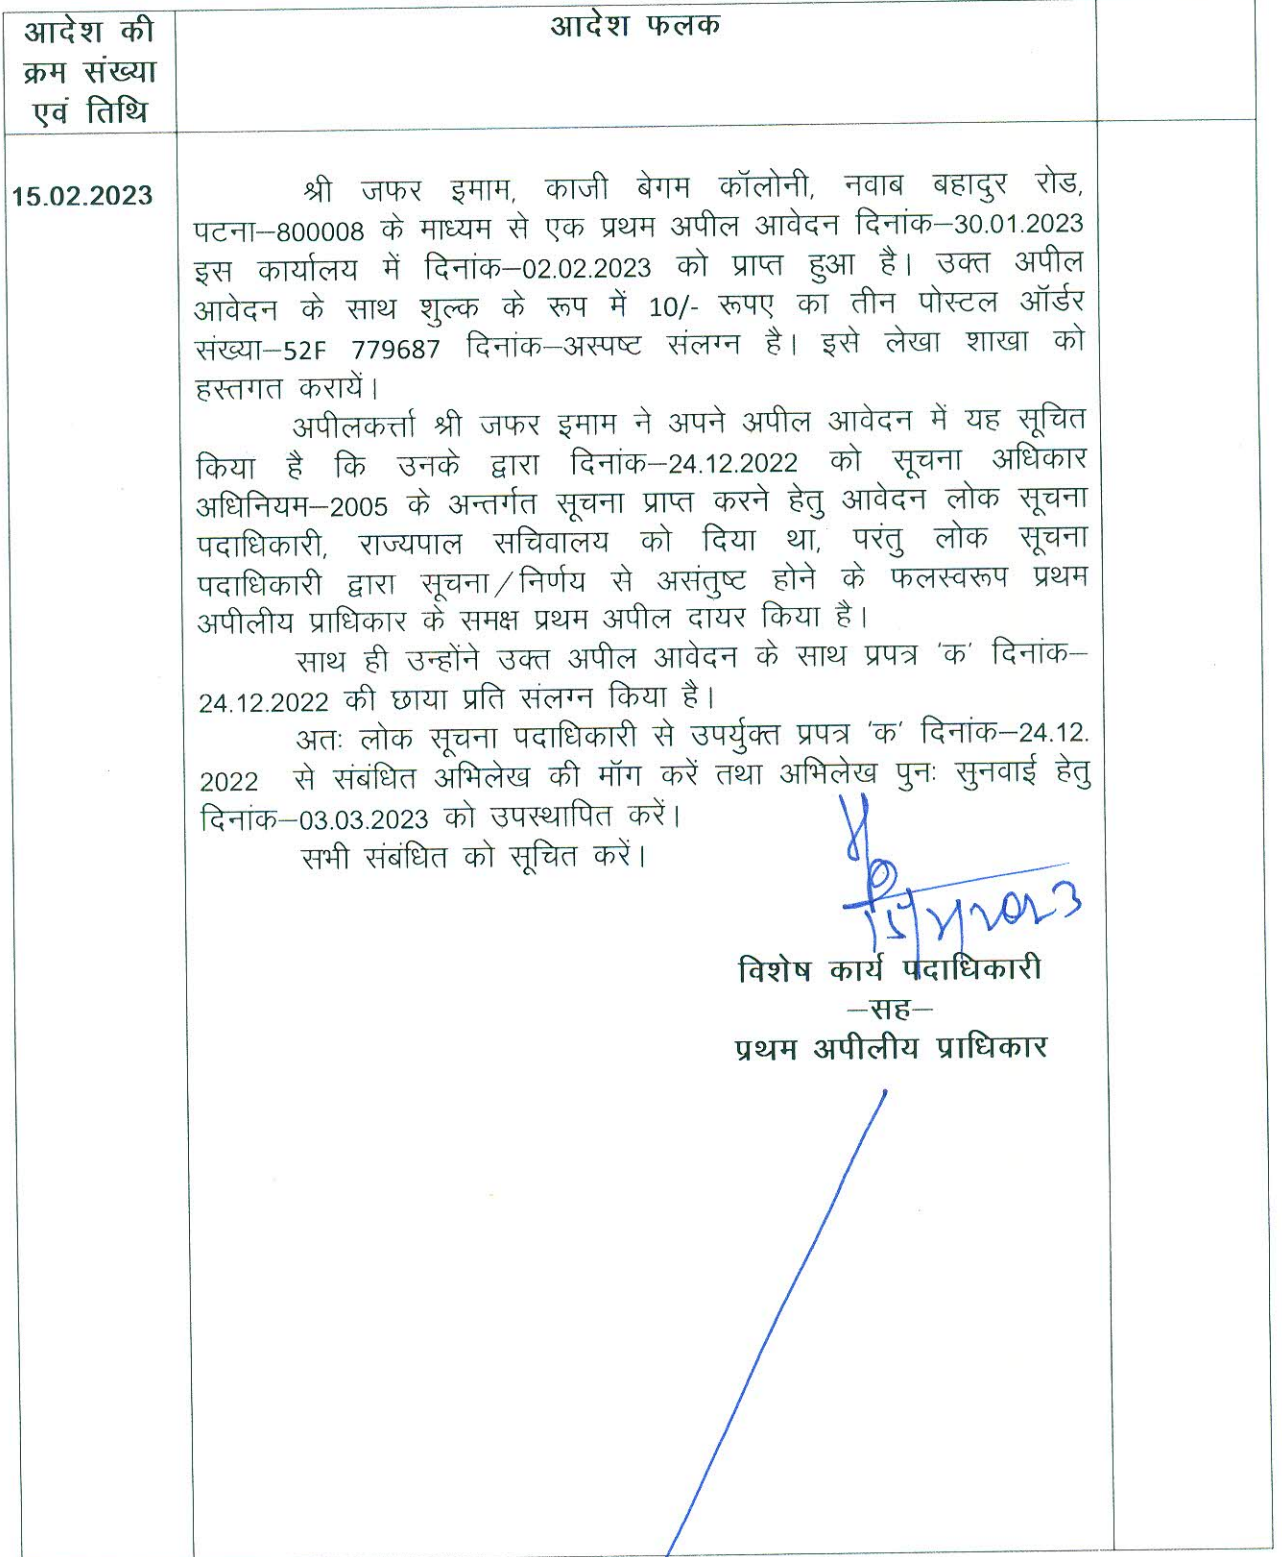 आदेश की
क्रम संख्या
एवं तिथि
आदेश फलक
15.02.2023
श्री जफर इमाम, काजी बेगम कॉलोनी, नवाब बहादुर रोड,
पटना–800008 के माध्यम से एक प्रथम अपील आवेदन दिनांक–30.01.2023
इस कार्यालय में दिनांक–02.02.2023 को प्राप्त हुआ है। उक्त अपील
आवेदन के साथ शुल्क के रूप में 10/- रूपए का तीन पोस्टल ऑर्डर
संख्या–52F 779687 दिनांक–अस्पष्ट संलग्न है। इसे लेखा शाखा को
हस्तगत करायें।
अपीलकर्त्ता श्री जफर इमाम ने अपने अपील आवेदन में यह सूचित
किया है कि उनके द्वारा दिनांक–24.12.2022 को सूचना अधिकार
अधिनियम–2005 के अन्तर्गत सूचना प्राप्त करने हेतु आवेदन लोक सूचना
पदाधिकारी, राज्यपाल सचिवालय को दिया था, परंतु लोक सूचना
पदाधिकारी द्वारा सूचना/निर्णय से असंतुष्ट होने के फलस्वरूप प्रथम
अपीलीय प्राधिकार के समक्ष प्रथम अपील दायर किया है।
साथ ही उन्होंने उक्त अपील आवेदन के साथ प्रपत्र 'क' दिनांक–
24.12.2022 की छाया प्रति संलग्न किया है।
अतः लोक सूचना पदाधिकारी से उपर्युक्त प्रपत्र 'क' दिनांक–24.12.
2022 से संबंधित अभिलेख की मॉग करें तथा अभिलेख पुनः सुनवाई हेतु
दिनांक–03.03.2023 को उपस्थापित करें।
सभी संबंधित को सूचित करें।
15/2/2023
विशेष कार्य पदाधिकारी
–सह–
प्रथम अपीलीय प्राधिकार